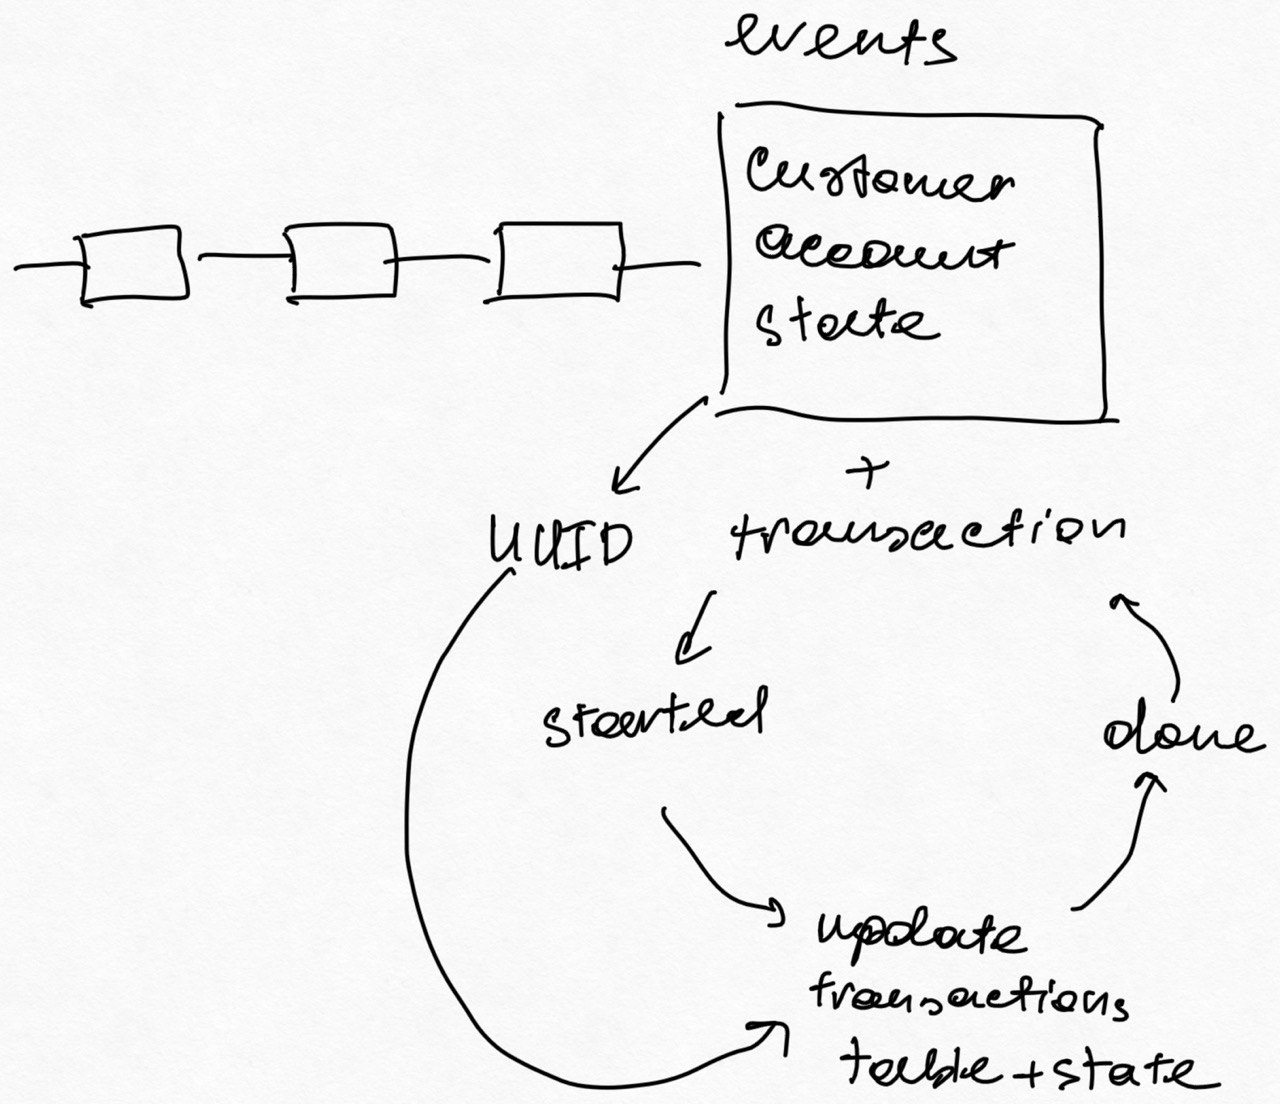 events
Customer
account
state
+
UUID transaction
started
done
update
transactions
table + state